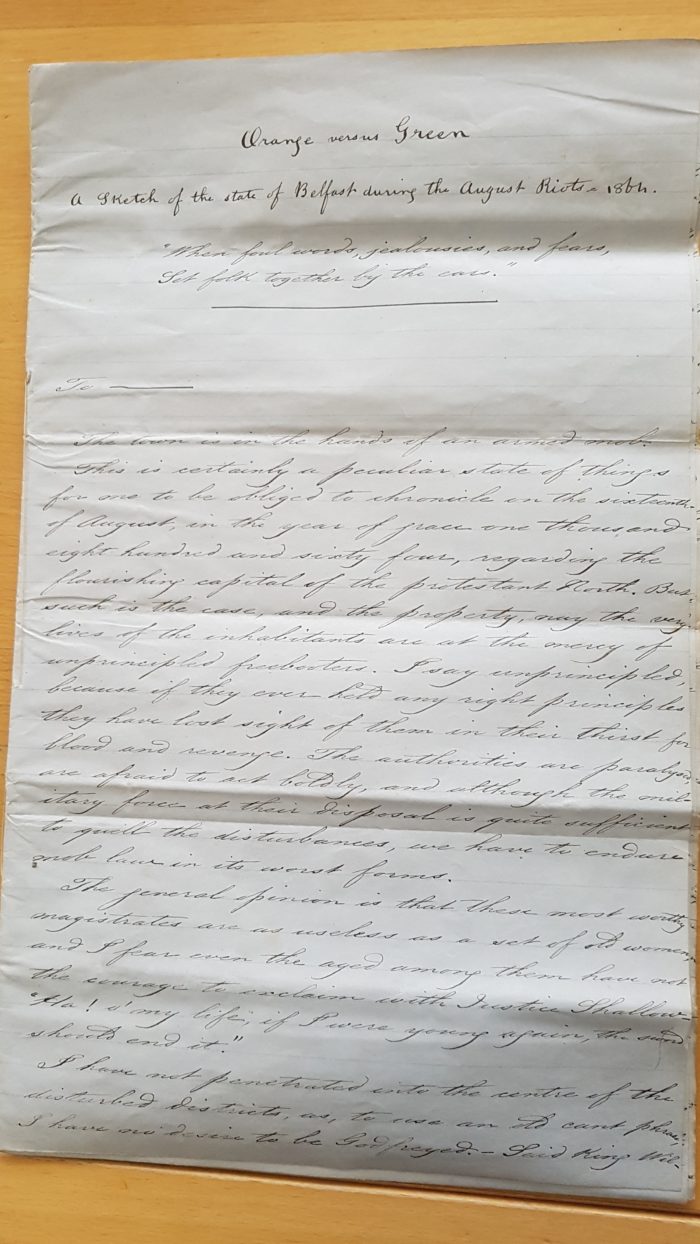 Orange versus Green
A Sketch of the state of Belfast during the August Riots - 1864.
"When foul words, jealousies, and fears,
Set folk together by the ears."
To
The town is in the hands of an armed mob.
This is certainly a peculiar state of things
for me to be obliged to chronicle on the sixteenth
of August, in the year of grace one thousand
eight hundred and sixty four, regarding the
flourishing capital of the protestant North. But
such is the case, and the property, nay the very
lives of the inhabitants are at the mercy of
unprincipled freebooters. I say unprincipled,
because if they ever held any right principles
they have lost sight of them in their thirst for
blood and revenge. The authorities are paralysed
are afraid to act boldly, and although the mil-
itary force at their disposal is quite sufficient
to quell the disturbances, we have to endure
mob law in its worst forms.
The general opinion is that these most worthy
magistrates are as useless as a set of old women
and I fear even the aged among them have not
the courage to exclaim with Justice Shallow
"Ha! o' my life, if I were young again, the sword
should end it."
I have not penetrated into the centre of the
disturbed districts, as, to use an old cant phrase,
I have no desire to be Godfreyed. - Said King Wil-